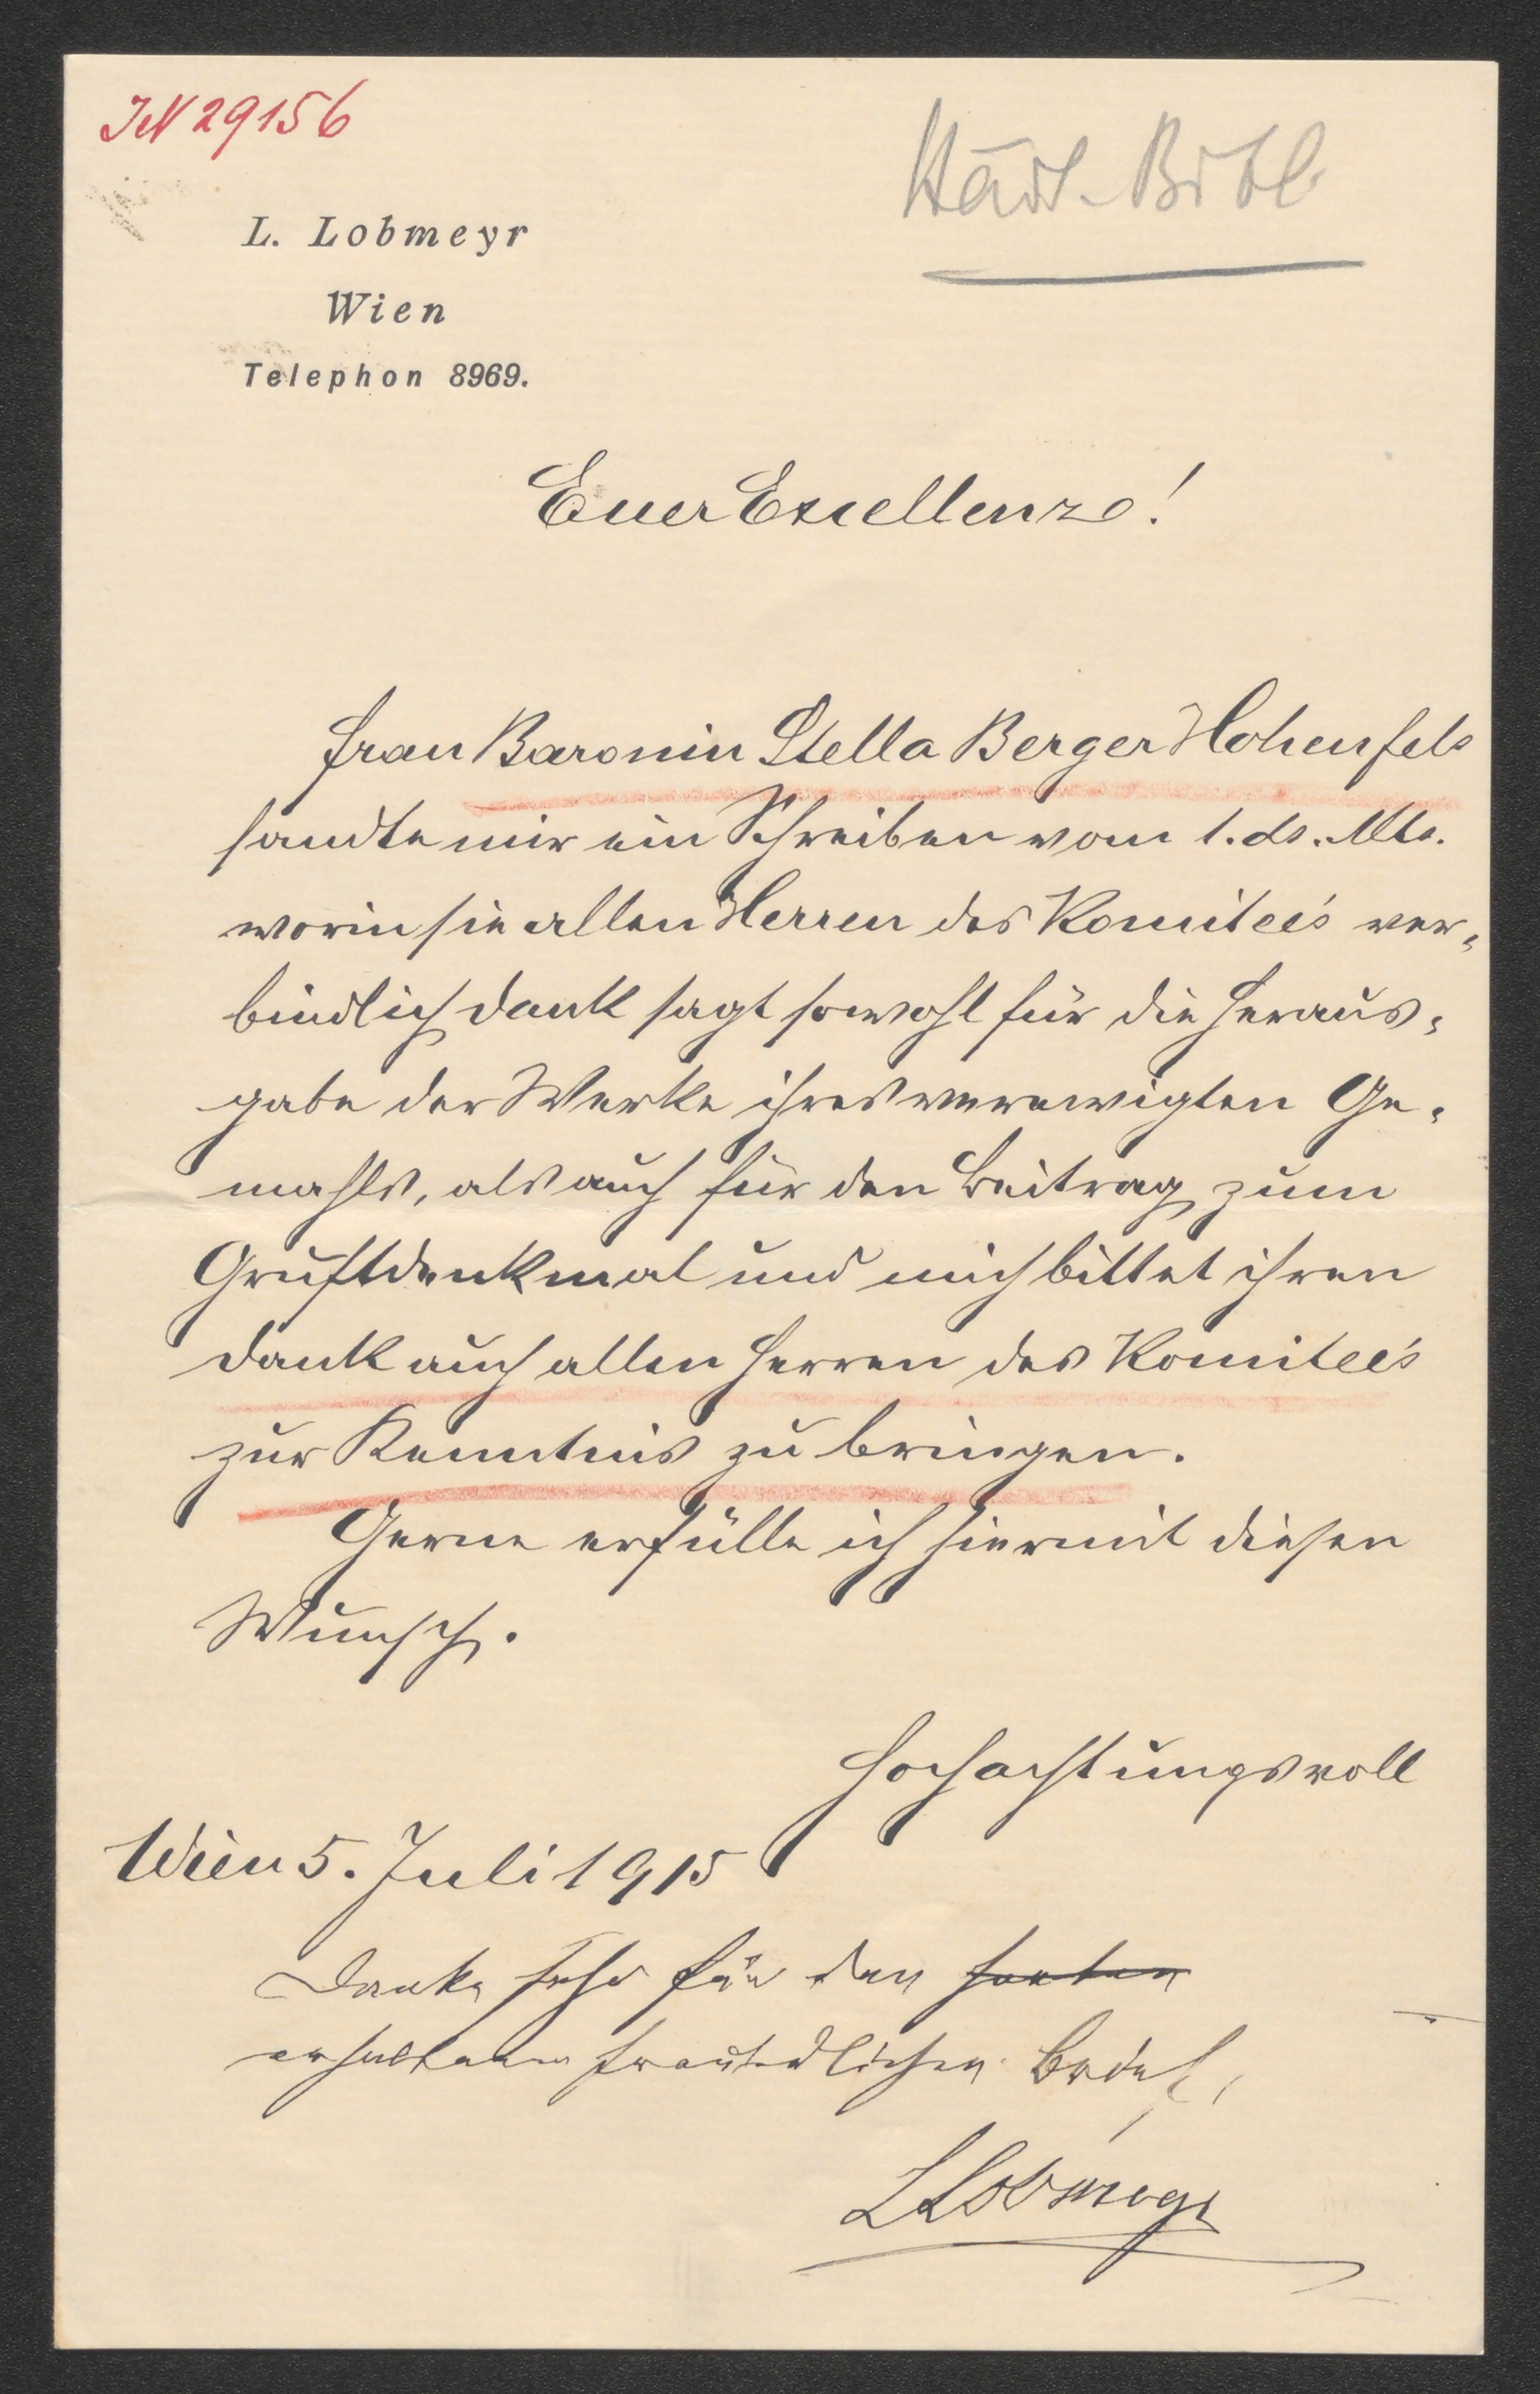 IN 29156
Städt. Bibl
L. Lobmeyr
Wien
Telephon 8969.
Euer Excellenz!
Frau Baronin Stella Berger Hohenfels
sandte mir ein Schreiben vom 1. ds. Mts.
worin sie allen Herren des Komiteés ver-
bindlich dankt sagt sowohl für die Heraus-
gabe der Werke ihres verewigten Ge-
mahls, als auch für den Beitrag zum
Gruftdenkmal und mich bittet ihren
Dank auch allen Herren des Komiteés
zur Kenntnis zu bringen.
Gerne erfülle ich hiermit diesen
Wunsch.
Hochachtungsvoll
Wien 5. Juli 1915
Danke sehr für den
erhaltenen freundlichen Brief,
LLobmeyr